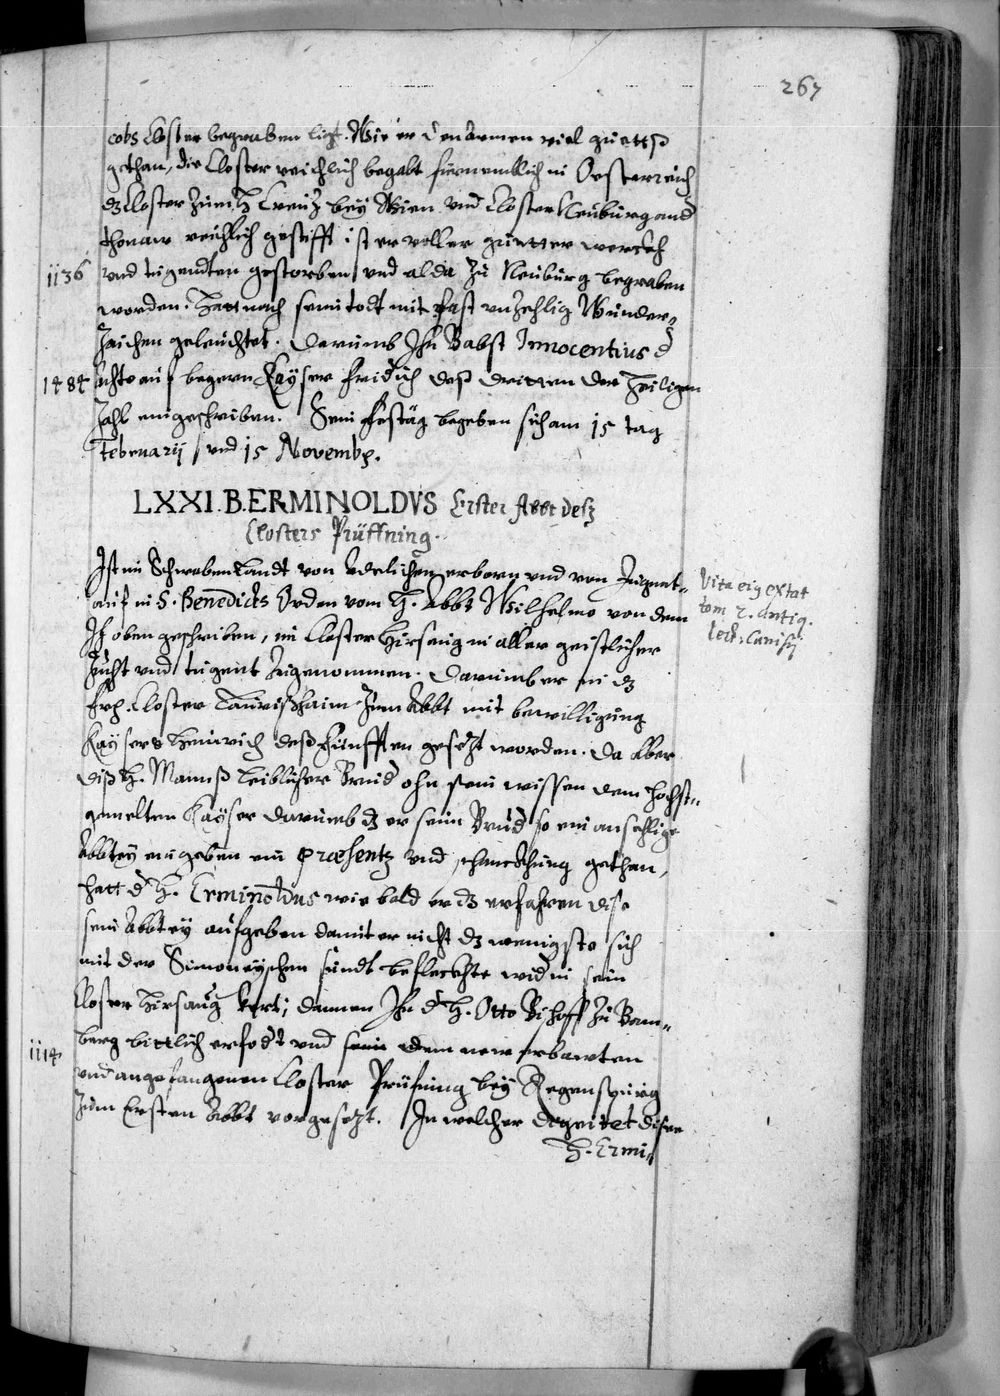 267
cobs Closter begraben ligt. Wie er den Armen viel guetts
gethan, die Closter reichlich begabt fürnemblich in Oesterreich
dz Closter zum H. Creutz bey Wien und Closter Neuburg and
thonaw reichlich gestifft ist er voller guetter werckh
1136 und tugendten gestorben und alda zu Neuburg begraben
worden. Hatt nach seim todt mit fast unzehlig Wunder-
zaichen geleuchtet. Darumb Ihn Babst Innocentius d
1484 achte auf begern Kayser Fridrich deß dritten der Heiligen
Zahl eingeschriben. Sein Festäg begeben sich am 15 tag
Februarij und 15 Novemb.
LXXI. B. ERMINOLDVS Erster Abbt desz
Closters Prüffning.
Ist im Schwabenlandt von Adelichen erborn und von Jugent-
auf in S. Benedicts Orden vom H. Abbt Wilhelmo von dem
Ist oben geschriben, im Closter Hirsaug in aller geistlicher
Zucht und tugent zugenommen. Darumb er in dz
Closter Laurißhaim zum Abbt mit bewilligung
Kaysers Heinrich deß Fünfften gesetzt worden. Da Aber
diß H. Manns leiblicher Brud ohn sein wissen dem hochst-
gemelten Kayser darumb dz er seim Brud so ein ansehlige
Abbtey eingeben ein præsentz und schanckhung gethan,
hatt d H. Erminoldus wie bald er dz erfahren dise
sein Abbtey aufgeben damit er nicht dz wenigste sich
mit der Simoneyschen sündt befleckhte wid in sein
Closter Hirsaug kert; dannen Ihn d H. Otto Bischoff zu Bam-
1114 berg bittlich erfodt und dem new erbawten
und angefangenen Closter Prüfning bey Regenspurg
zum Ersten Abbt vorgesetzt. In welcher degnitet diser
H. Ermi-
Vita eig extat
tom 2. Antiq.
lect. Canisij